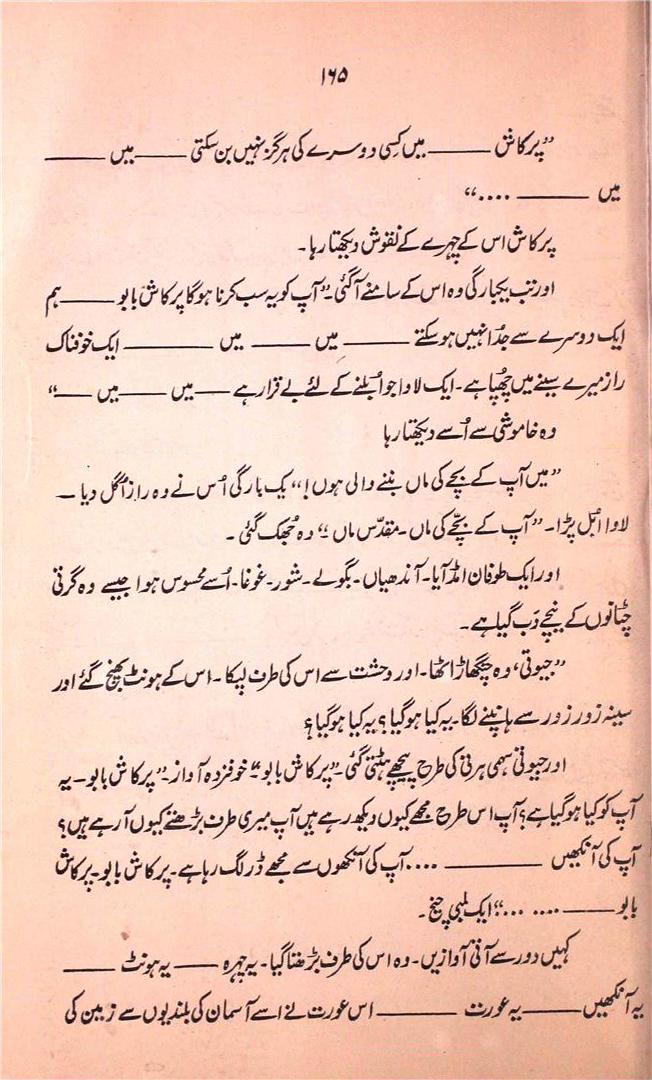 ۱۶۵
”پرکاش ——— میں کسی دوسرے کی ہرگز نہیں بن سکتی ——— میں ———
میں ——— ....“
پرکاش اس کے چہرے کے نقوش دیکھتا رہا۔
اور تب یکبارگی وہ اس کے سامنے آگئی۔ ”آپ کو یہ سب کرنا ہوگا پرکاش بابو ——— ہم
ایک دوسرے سے جُدا نہیں ہوسکتے ——— میں ——— میں ——— ایک خوفناک
راز میرے سینے میں چھُپا ہے۔ ایک لاوا جو اُبلنے کے لئے بے قرار ہے —— میں —— میں ——“
وہ خاموشی سے اُسے دیکھتا رہا
”میں آپ کے بچے کی ماں بننے والی ہوں!“ یک بارگی اُس نے وہ راز اُگل دیا —
لاوا اُبل پڑا۔ ”آپ کے بچّے کی ماں۔ مقدّس ماں“ وہ جُھک گئی۔
اور ایک طوفان امڈ آیا۔ آندھیاں۔ بگولے۔ شور۔ غوغا۔ اُسے محسوس ہوا جیسے وہ گرتی
چٹانوں کے نیچے دَب گیا ہے۔
”جیوتی‘ وہ چنگھاڑ اٹھا۔ اور وحشت سے اس کی طرف لپکا۔ اس کے ہونٹ بھنچ گئے اور
سینہ زور زور سے ہانپنے لگا۔ یہ کیا ہوگیا؟ یہ کیا ہوگیا؟
اور جیوتی سہمی ہرنی کی طرح پیچھے ہٹتی گئی۔ ”پرکاش بابو“ خوفزدہ آواز۔ ”پرکاش بابو۔ یہ
آپ کو کیا ہوگیا ہے؟ آپ اس طرح مجھے کیوں دیکھ رہے ہیں آپ میری طرف بڑھتے کیوں آرہے ہیں؟
آپ کی آنکھیں ——— .... آپ کی آنکھوں سے مجھے ڈر لگ رہا ہے۔ پرکاش بابو۔ پرکاش
بابو ——— .... ...“ ایک لمبی چیخ۔
کہیں دور سے آتی آوازیں۔ وہ اس کی طرف بڑھتا گیا۔ یہ چہرہ —— یہ ہونٹ ———
یہ آنکھیں ——— یہ عورت ——— اس عورت نے اسے آسمان کی بلندیوں سے زمین کی